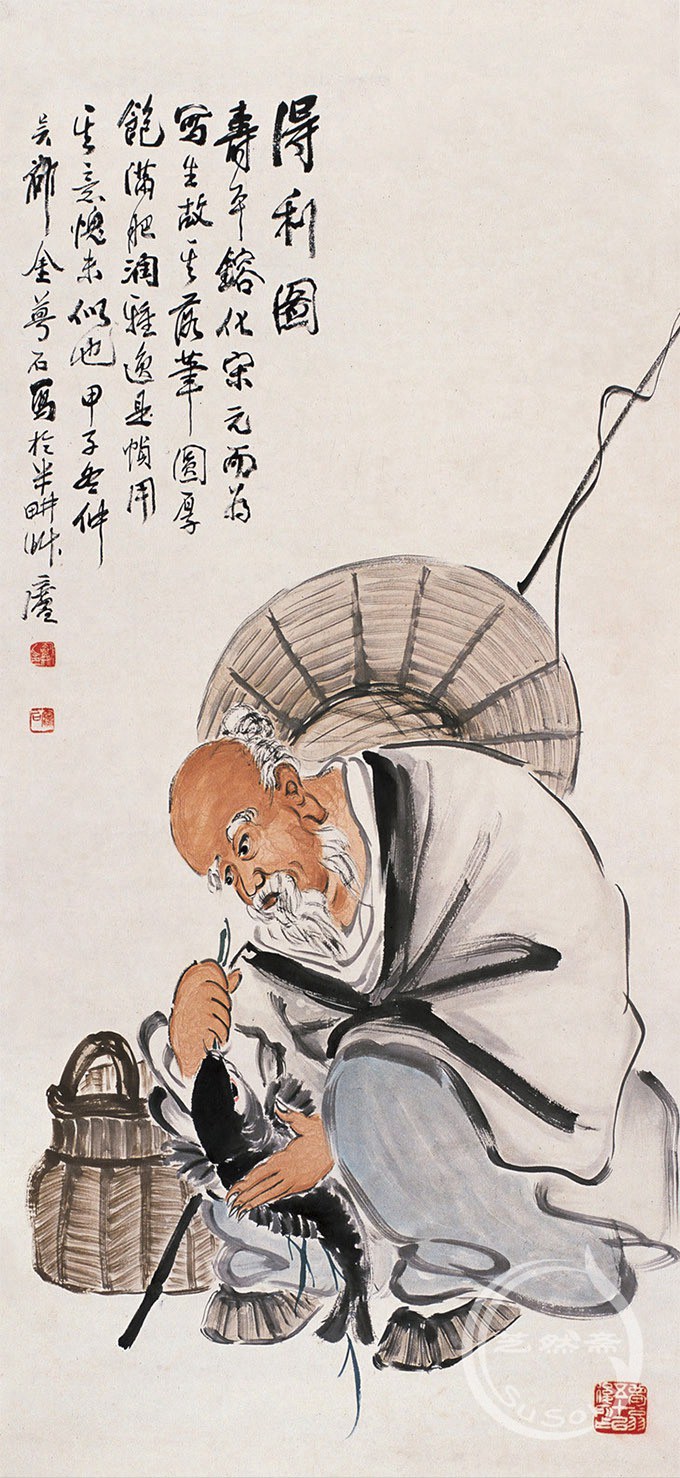 得利圖
壽平鎔化宋元而為
寫生故其落筆圓厚
飽滿肥潤雅逸是幀用
其意愧未似也甲子冬仲
吳郡金夢石寫於半畊艸廬
艺然斋